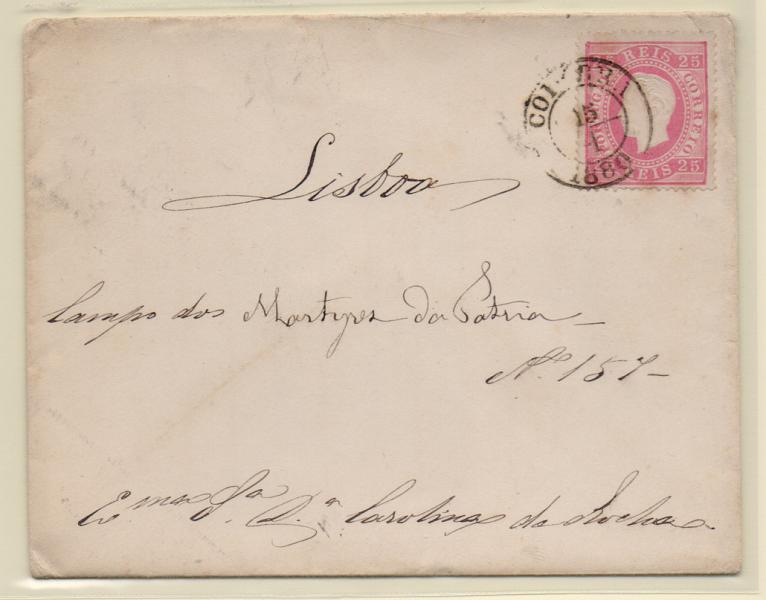 25 REIS 25
CORREIO
25 REIS 25
15
1
1880
Lisboa
Campo dos Martyres da Patria
Nº 157
Exma Sra D.a Carolina da Rocha